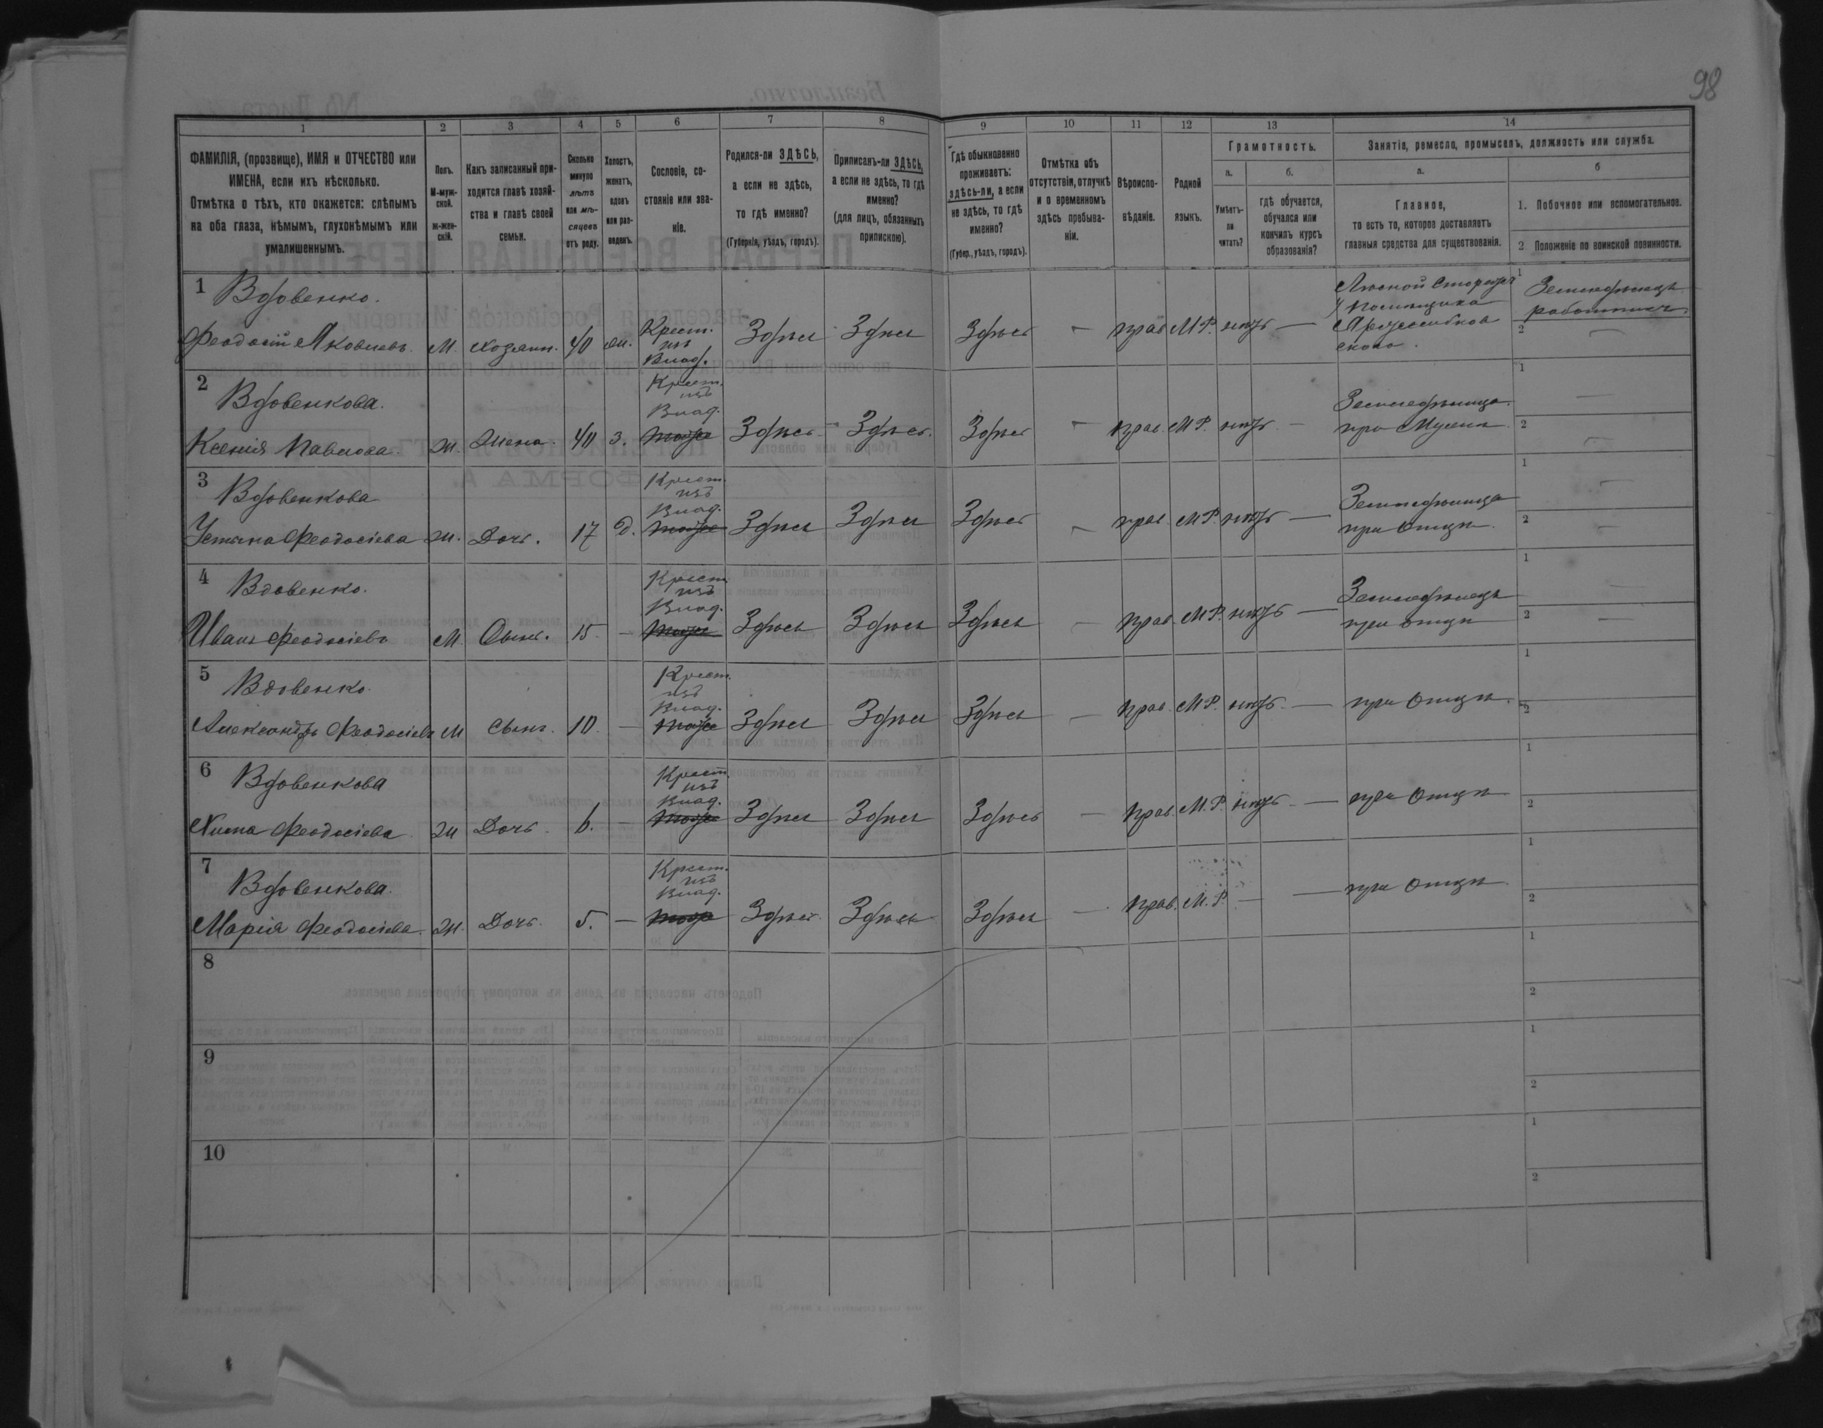 98
1
2
3
4
5
6
7
8
9
10
11
12
13
14
ФАМИЛІЯ, (прозвище), ИМЯ и ОТЧЕСТВО или
ИМЕНА, если ихъ нѣсколько.
Отмѣтка о тѣхъ, кто окажется: слѣпымъ
на оба глаза, нѣмымъ, глухонѣмымъ или
умалишеннымъ.
Полъ.
М-муж-
ской.
ж-жен-
скій.
Какъ записанный при-
ходится главѣ хозяй-
ства и главѣ своей
семьи.
Сколько
минуло
лѣтъ
или мѣ-
сяцевъ
отъ роду.
Холостъ,
женатъ,
вдовъ
или раз-
веденъ.
Сословіе, со-
стояніе или зва-
ніе.
Родился-ли ЗДѢСЬ,
а если не здѣсь,
то гдѣ именно?
(Губернія, уѣздъ, городъ).
Приписанъ-ли ЗДѢСЬ,
а если не здѣсь, то гдѣ
именно?
(для лицъ, обязанныхъ
припискою).
Гдѣ обыкновенно
проживаетъ:
здѣсь-ли, а если
не здѣсь, то гдѣ
именно?
(Губер., уѣздъ, городъ).
Отмѣтка объ
отсутствіи, отлучкѣ
и о временномъ
здѣсь пребыва-
ніи.
Вѣроиспо-
вѣданіе.
Родной
языкъ.
Грамотность.
а.
Умѣетъ-
ли
читать?
б.
гдѣ обучается,
обучался или
кончилъ курсъ
образованія?
Занятія, ремесло, промыселъ, должность или служба.
а.
Главное,
то есть то, которое доставляетъ
главныя средства для существованія.
б
1. Побочное или вспомогательное.
2 Положеніе по воинской повинности.
1 Вдовенко.
Феодосій Яковлевъ М. хозяинъ. 40 ж. Крест. изъ Влад. Здѣсь Здѣсь Здѣсь — прав М.Р. нѣтъ —
Лѣсной Сторожъ
у Помѣщика
1 Земледѣлецъ
работникъ
2
2 Вдовенкова.
Ксенія Павлова ж. Жена. 40 з. Крест. изъ Влад. тоже Здѣсь Здѣсь. Здѣсь — прав М.Р. нѣтъ — Земледѣлица при Мужѣ
1 —
2 —
3 Вдовенкова
Устина Феодосіева ж. Дочь. 17 д. Крест. изъ Влад. тоже Здѣсь Здѣсь Здѣсь — прав М.Р. нѣтъ — Земледѣлица при Отцѣ
1 —
2 —
4 Вдовенко.
Иванъ Феодосіевъ М Сынъ. 15 — Крест изъ Влад. тоже Здѣсь Здѣсь Здѣсь — прав М.Р. нѣтъ — Земледѣлецъ при отцѣ
1 —
2 —
5 Вдовенко.
Александръ Феодосіевъ М Сынъ. 10 — Крест. изъ Влад. тоже Здѣсь Здѣсь Здѣсь — прав. М.Р. нѣтъ — при Отцѣ
1
2
6 Вдовенкова
Феодосіева ж Дочь. 6. — Крест. изъ Влад. тоже Здѣсь Здѣсь Здѣсь — прав. М.Р. нѣтъ — при Отцѣ
1
2
7 Вдовенкова.
Марія Феодосіева ж. Дочь. 5. — Крест. изъ Влад. тоже Здѣсь Здѣсь Здѣсь — прав. М.Р. — — при Отцѣ
1
2
8
1
2
9
1
2
10
1
2